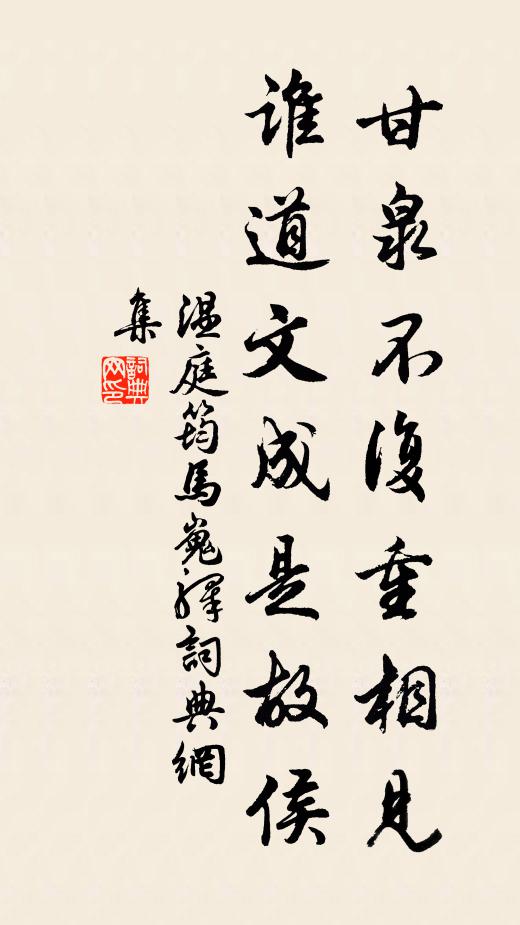 甘泉不復重相見
誰道文成是故侯
温庭筠馬嵬驛詞典網
集
詞典网印